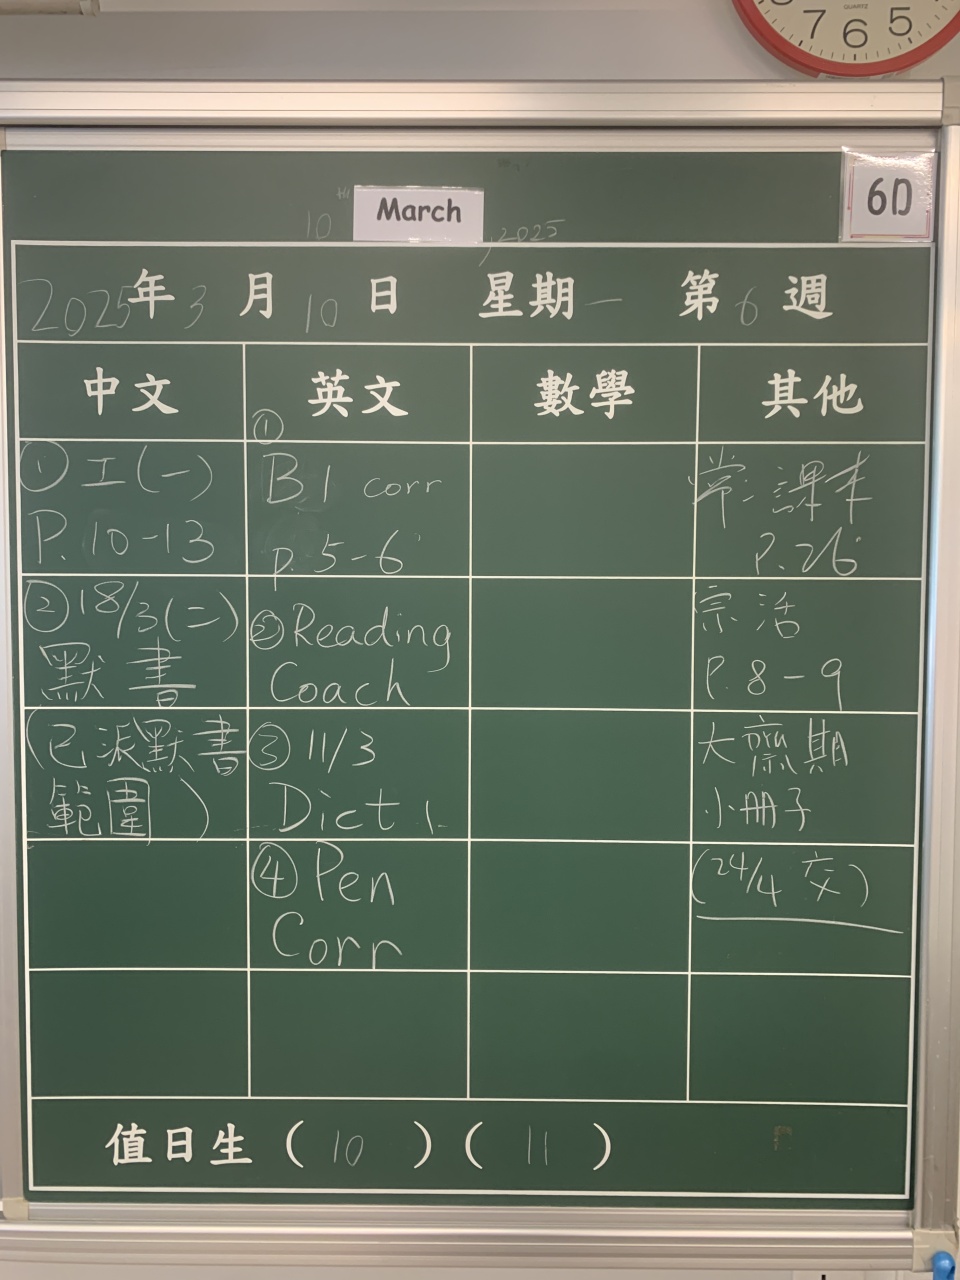 QUARTZ
7 6 5
6D
10th March, 2025
2025年3月10日 星期一 第6週
中文 英文 數學 其他
①工(一)
P.10-13
②18/3(二)
默書
(已派默書
範圍)
①
B1 corr
p.5-6
②Reading
Coach
③11/3
Dict 1.
④Pen
Corr
常:課本
P.26
宗活
P.8-9
大齋期
小冊子
(24/4 交)
值日生(10)(11)